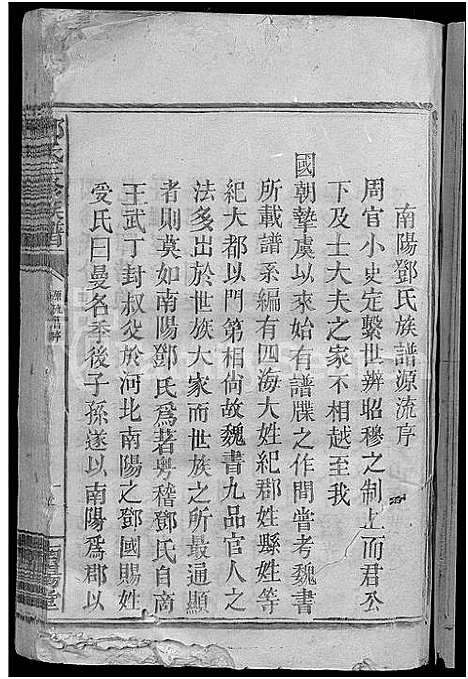 南陽鄧氏族譜源流序
周官小史定繫世辨昭穆之制上而君公
下及士大夫之家不相越至我
國朝摯虞以來始有譜牒之作間嘗考魏書
所載譜系編有四海大姓紀郡姓縣姓等
紀大都以門第相尙故魏書九品官人之
法多出於世族大家而世族之所最通顯
者則莫如南陽鄧氏爲著粤稽鄧氏自商
王武丁封叔父於河北南陽之鄧國賜姓
受氏曰曼名季後子孫遂以南陽爲郡以